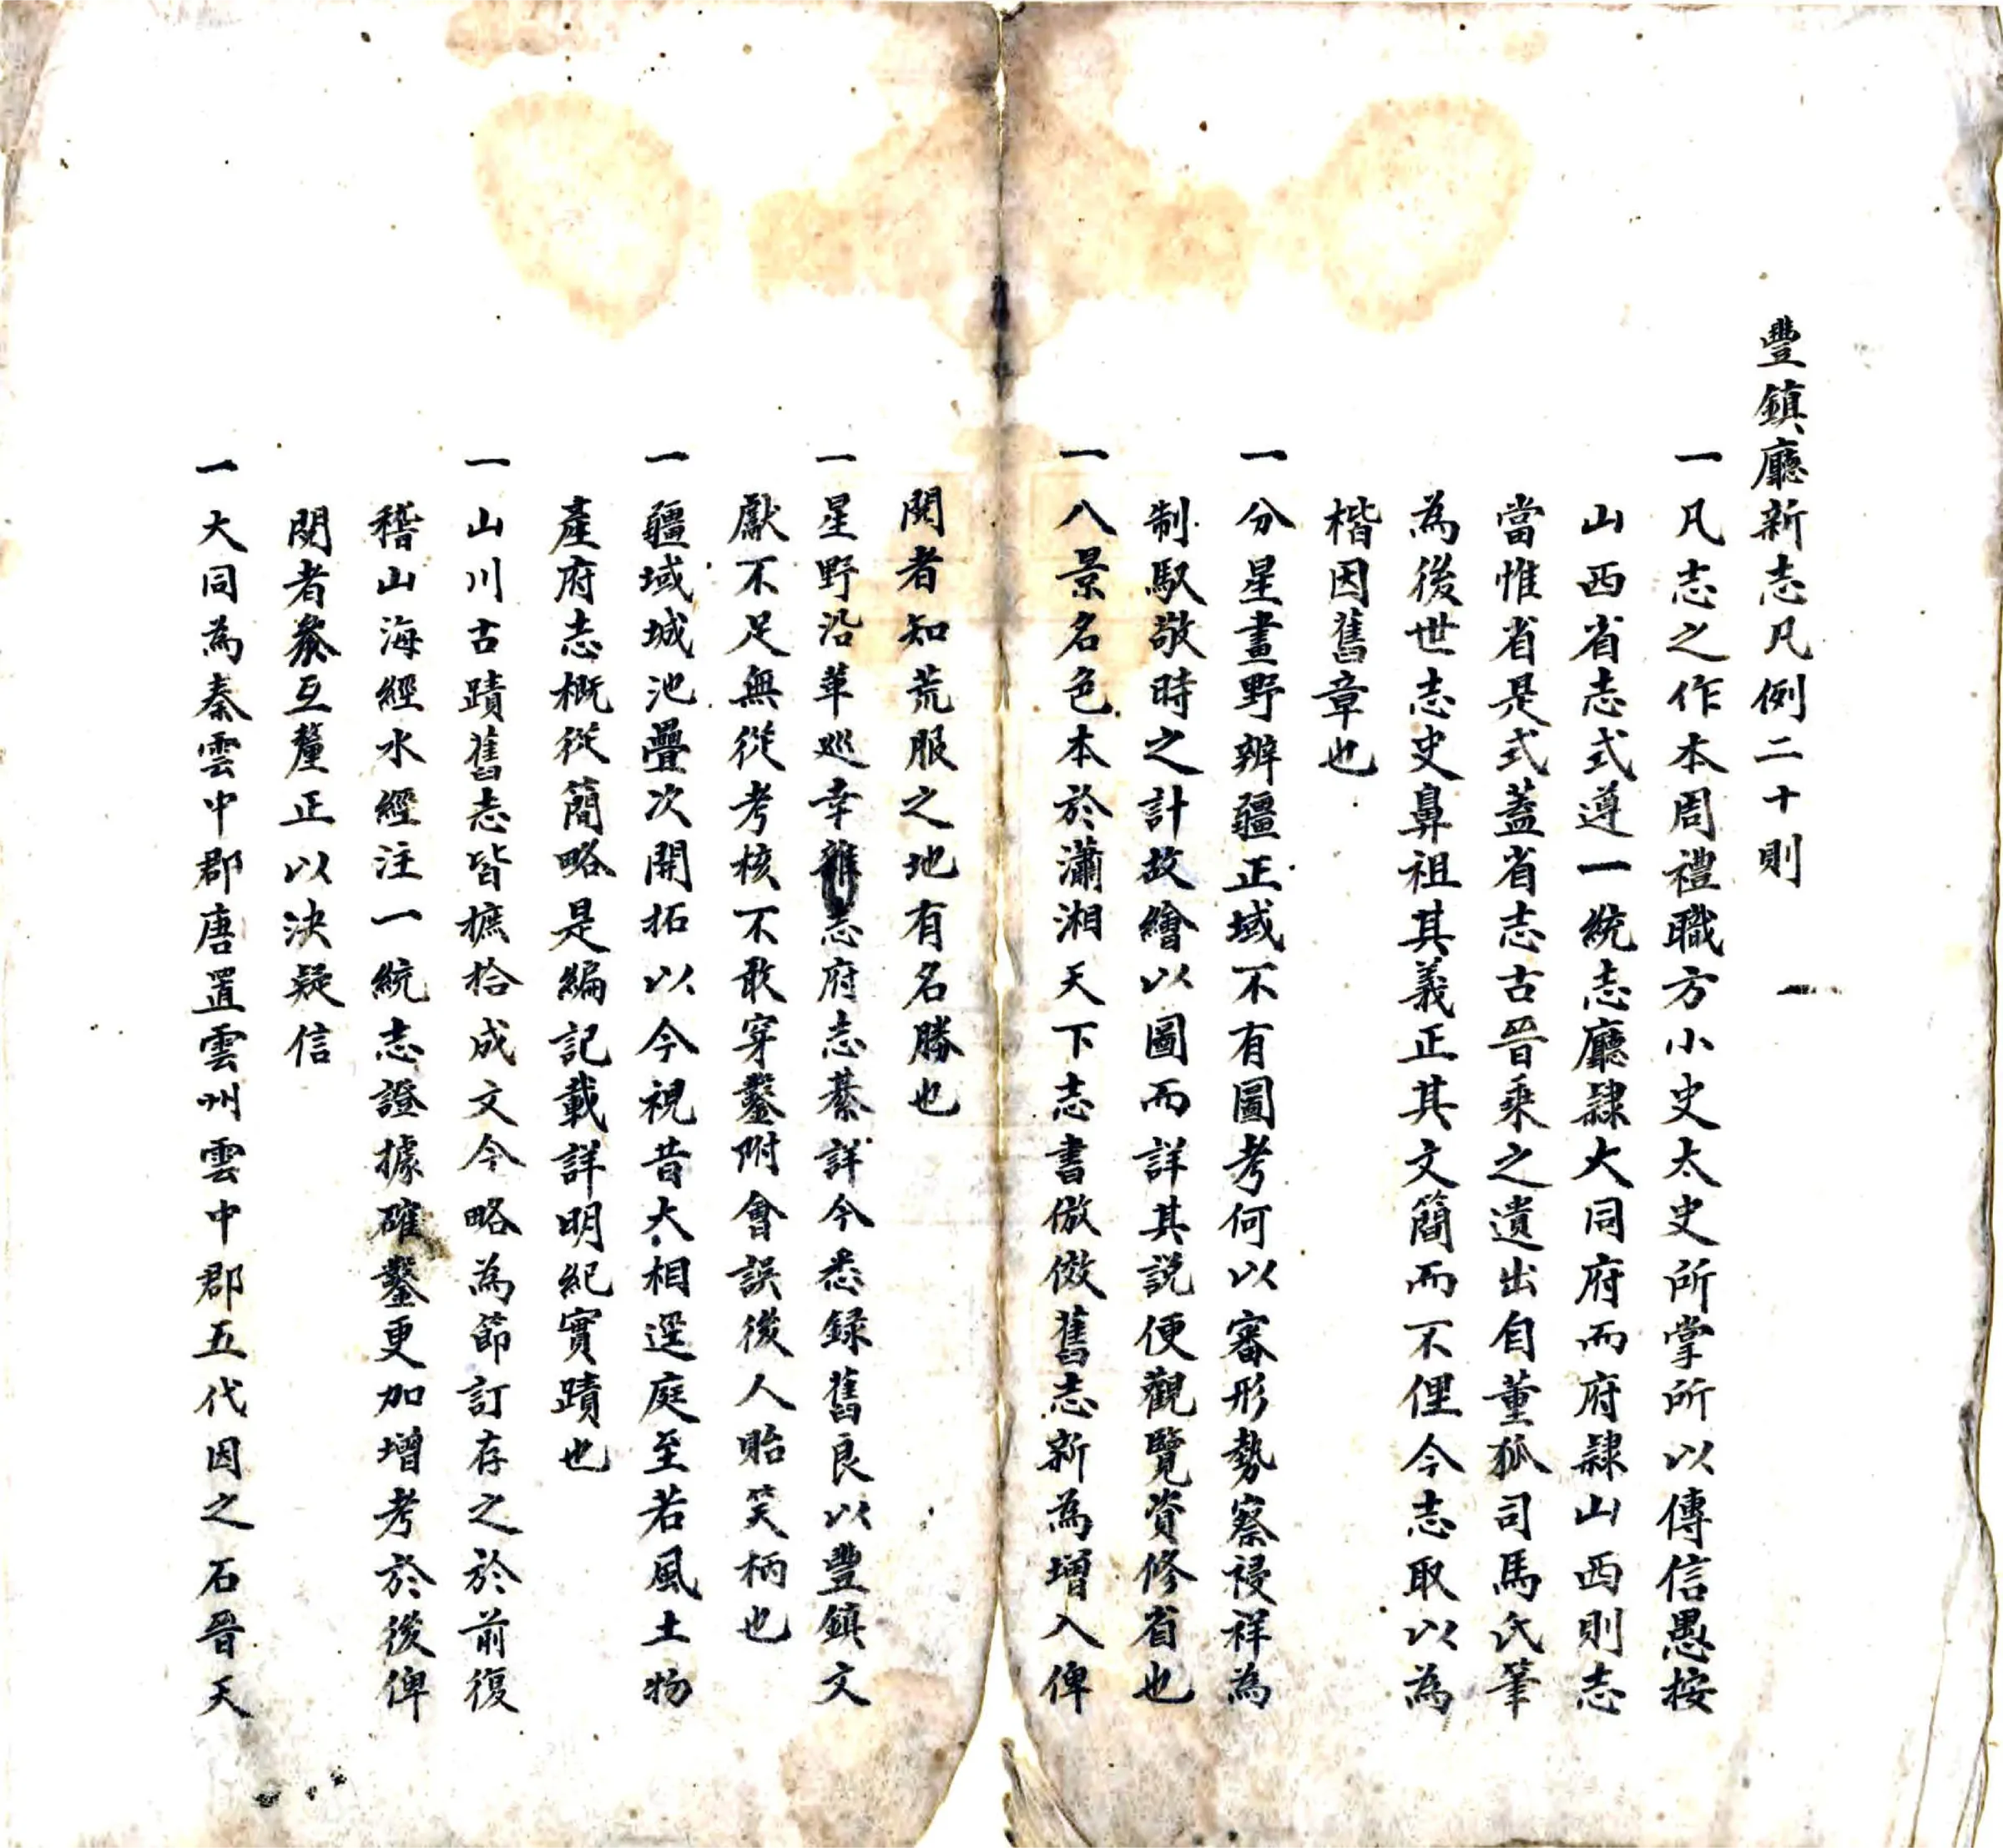 豐鎮廳新志凡例二十則
一凡志之作本周禮職方小史太史所掌所以傳信愚按
山西省志式遵一統志廳隸大同府而府隸山西則志
當惟省是式蓋省志古晉乘之遺出自董狐司馬氏筆
為後世志史鼻祖其義正其文簡而不俚今志取以為
楷因舊章也
一分星畫野辨疆正域不有圖考何以審形勢察祲祥為
制馭敬時之計故繪以圖而詳其說便觀覽資修省也
一八景名色本於瀟湘天下志書倣傚舊志新為增入俾
閱者知荒服之地有名勝也
一星野沿革巡幸雜志府志綦詳今悉録舊良以豐鎮文
獻不足無從考核不敢穿鑿附會誤後人貽笑柄也
一疆域城池疊次開拓以今視昔大相逕庭至若風土物
產府志概從簡略是編記載詳明紀實蹟也
一山川古蹟舊志皆摭拾成文今略為節訂存之於前復
稽山海經水經注一統志證據確鑿更加增考於後俾
閱者叅互釐正以決疑信
一大同為秦雲中郡唐置雲州雲中郡五代因之石晉天